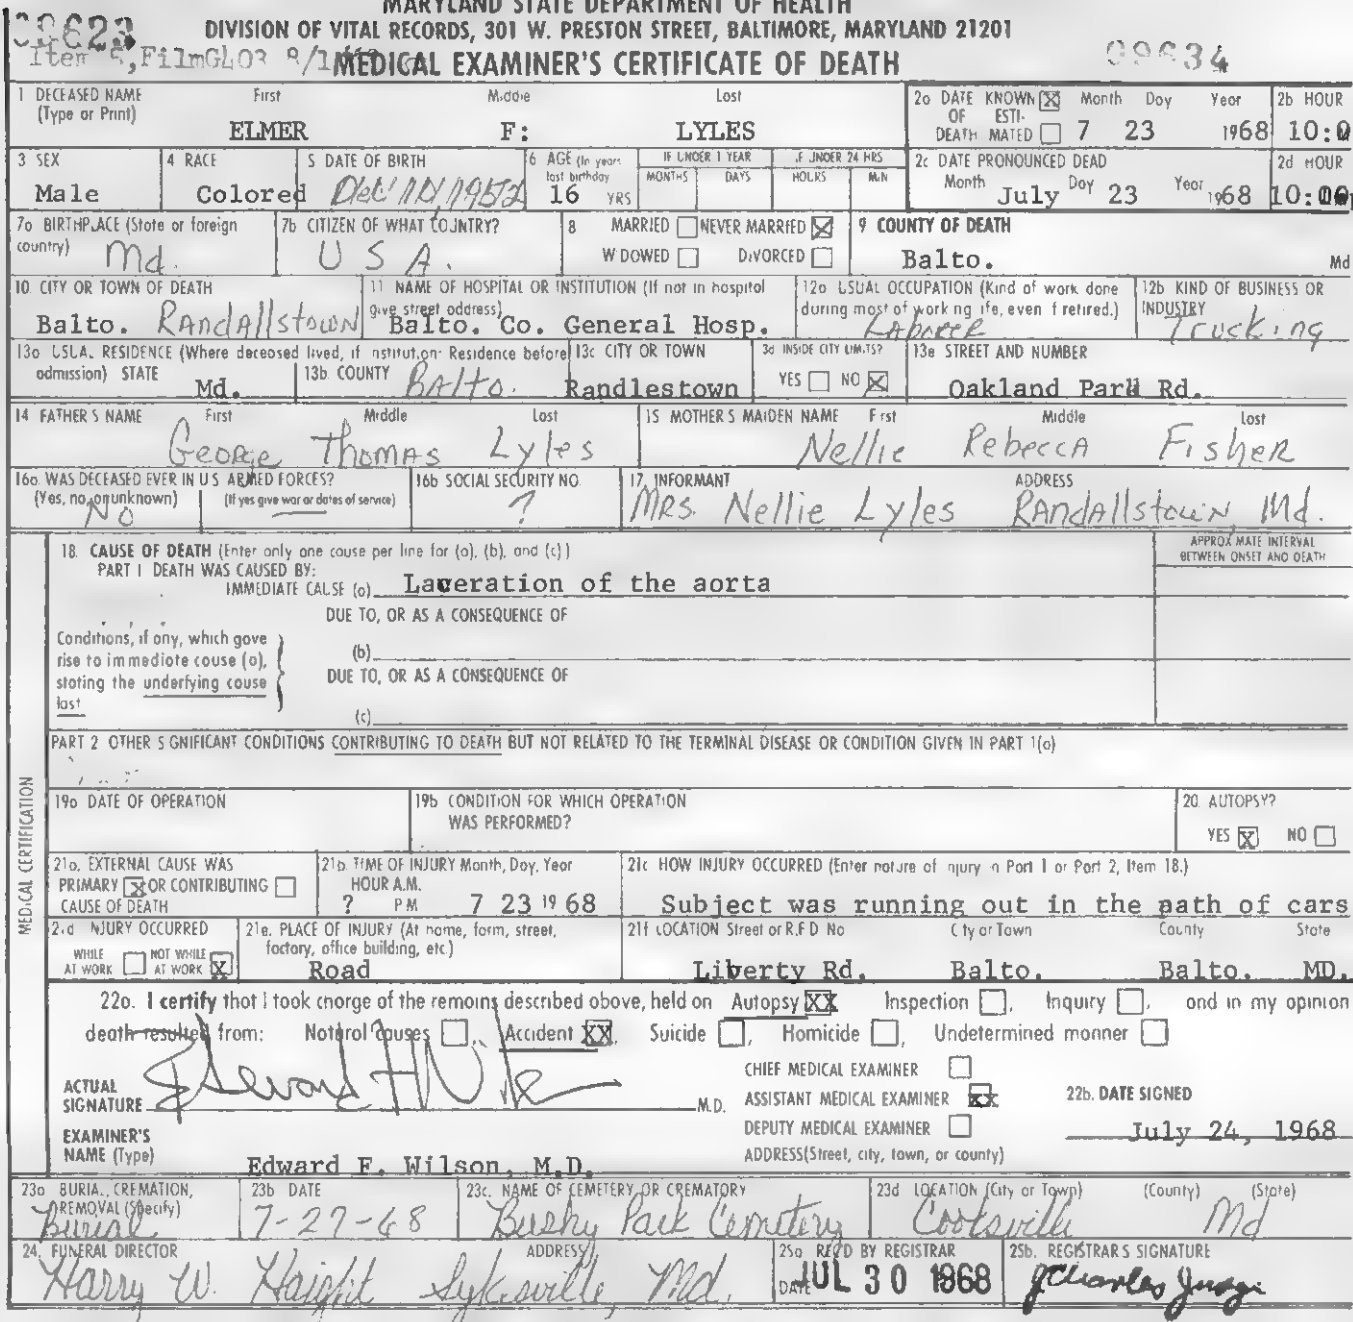 MARYLAND STATE DEPARTMENT OF HEALTH
DIVISION OF VITAL RECORDS, 301 W. PRESTON STREET, BALTIMORE, MARYLAND 21201
Item 5, FilmG403 8/1
MEDICAL EXAMINER'S CERTIFICATE OF DEATH
09634
1 DECEASED NAME (Type or Print) First Middle Last
ELMER F: LYLES
2a DATE KNOWN [X] OF ESTI- DEATH MATED [ ] Month Day Year
7 23 1968
2b HOUR
10:0
3 SEX
Male
4 RACE
Colored
5 DATE OF BIRTH
6 AGE (In years last birthday)
16 YRS
IF UNDER 1 YEAR MONTHS DAYS
IF UNDER 24 HRS HOURS MIN
2c DATE PRONOUNCED DEAD
Month July Day 23 Year 1968
2d HOUR
10:00
7a BIRTHPLACE (State or foreign country)
Md.
7b CITIZEN OF WHAT COUNTRY?
U S A.
8 MARRIED [ ] NEVER MARRIED [X]
WIDOWED [ ] DIVORCED [ ]
9 COUNTY OF DEATH
Balto. Md
10. CITY OR TOWN OF DEATH
Balto. RANdAllstown
11 NAME OF HOSPITAL OR INSTITUTION (If not in hospital give street address)
Balto. Co. General Hosp.
12a USUAL OCCUPATION (Kind of work done during most of working life, even if retired.)
LAborer
12b KIND OF BUSINESS OR INDUSTRY
Trucking
13a USUAL RESIDENCE (Where deceased lived, if institution: Residence before admission) STATE
Md.
13b. COUNTY
BAlto.
13c CITY OR TOWN
Randlestown
3d INSIDE CITY LIMITS?
YES [ ] NO [X]
13e STREET AND NUMBER
Oakland Park Rd.
14 FATHER'S NAME First Middle Last
George Thomas Lyles
15 MOTHER'S MAIDEN NAME First Middle Last
Nellie Rebecca Fisher
16a. WAS DECEASED EVER IN U S ARMED FORCES?
(Yes, no, or unknown) (If yes give war or dates of service)
No
16b SOCIAL SECURITY NO.
?
17. INFORMANT ADDRESS
MRS. Nellie Lyles RANdAllstown, Md.
18. CAUSE OF DEATH (Enter only one cause per line for (a), (b), and (c))
APPROXIMATE INTERVAL BETWEEN ONSET AND DEATH
PART I DEATH WAS CAUSED BY:
IMMEDIATE CAUSE (a) Laceration of the aorta
DUE TO, OR AS A CONSEQUENCE OF
Conditions, if any, which gave rise to immediate cause (a), stating the underlying cause last
(b)
DUE TO, OR AS A CONSEQUENCE OF
(c)
PART 2 OTHER SIGNIFICANT CONDITIONS CONTRIBUTING TO DEATH BUT NOT RELATED TO THE TERMINAL DISEASE OR CONDITION GIVEN IN PART 1(a)
MEDICAL CERTIFICATION
19a DATE OF OPERATION
19b CONDITION FOR WHICH OPERATION WAS PERFORMED?
20. AUTOPSY?
YES [X] NO [ ]
21a. EXTERNAL CAUSE WAS
PRIMARY [X] OR CONTRIBUTING [ ]
CAUSE OF DEATH
21b. TIME OF INJURY Month, Day, Year
HOUR A.M.
? P M 7 23 19 68
21c HOW INJURY OCCURRED (Enter nature of injury in Part 1 or Part 2, Item 18.)
Subject was running out in the path of cars
21d INJURY OCCURRED
WHILE AT WORK [ ] NOT WHILE AT WORK [X]
21e. PLACE OF INJURY (At home, farm, street, factory, office building, etc.)
Road
21f LOCATION Street or R.F D No City or Town County State
Liberty Rd. Balto. Balto. MD.
22a. I certify that I took charge of the remains described above, held on Autopsy [XX] Inspection [ ], Inquiry [ ], and in my opinion
death resulted from: Natural causes [ ], Accident [XX], Suicide [ ], Homicide [ ], Undetermined manner [ ]
ACTUAL SIGNATURE M.D.
CHIEF MEDICAL EXAMINER [ ]
ASSISTANT MEDICAL EXAMINER [XX]
DEPUTY MEDICAL EXAMINER [ ]
22b. DATE SIGNED
July 24, 1968
EXAMINER'S NAME (Type)
Edward F. Wilson, M.D.
ADDRESS(Street, city, town, or county)
23a BURIAL, CREMATION, REMOVAL (Specify)
Burial
23b DATE
7-27-68
23c. NAME OF CEMETERY OR CREMATORY
Bushy Park Cemetery
23d LOCATION (City or Town) (County) (State)
Cooksville Md
24. FUNERAL DIRECTOR ADDRESS
Harry W. Haight Sykesville, Md.
25a REC'D BY REGISTRAR
DATE JUL 30 1968
25b. REGISTRAR'S SIGNATURE
J Charles Judge